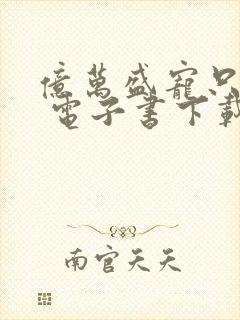 億萬盛寵只
電子書下載
南宮天天